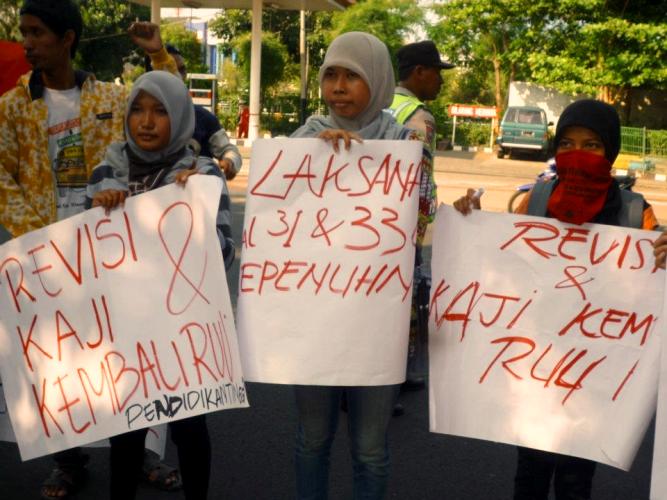 REVISI
&
KAJI
KEMBALI RUU
PENDIDIKAN TINGGI
LAKSANA
AL 31 & 33
EPENUHN
REVISI
&
KAJI KEM
RUU